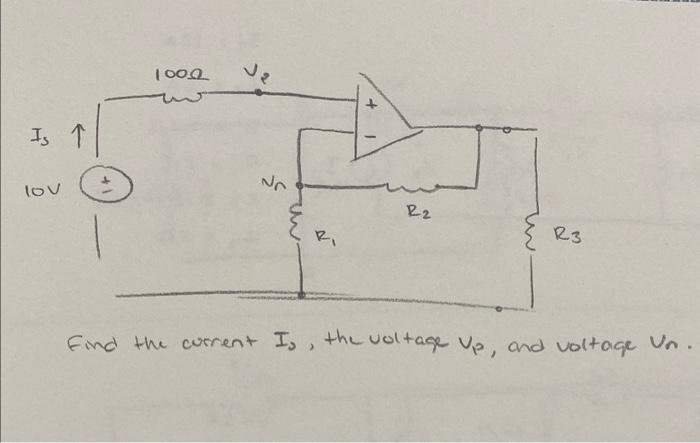 100Ω Vp
+
Is ↑
−
10V + − Vn
R2
R1 R3
Find the current Is, the voltage Vp, and voltage Vn.